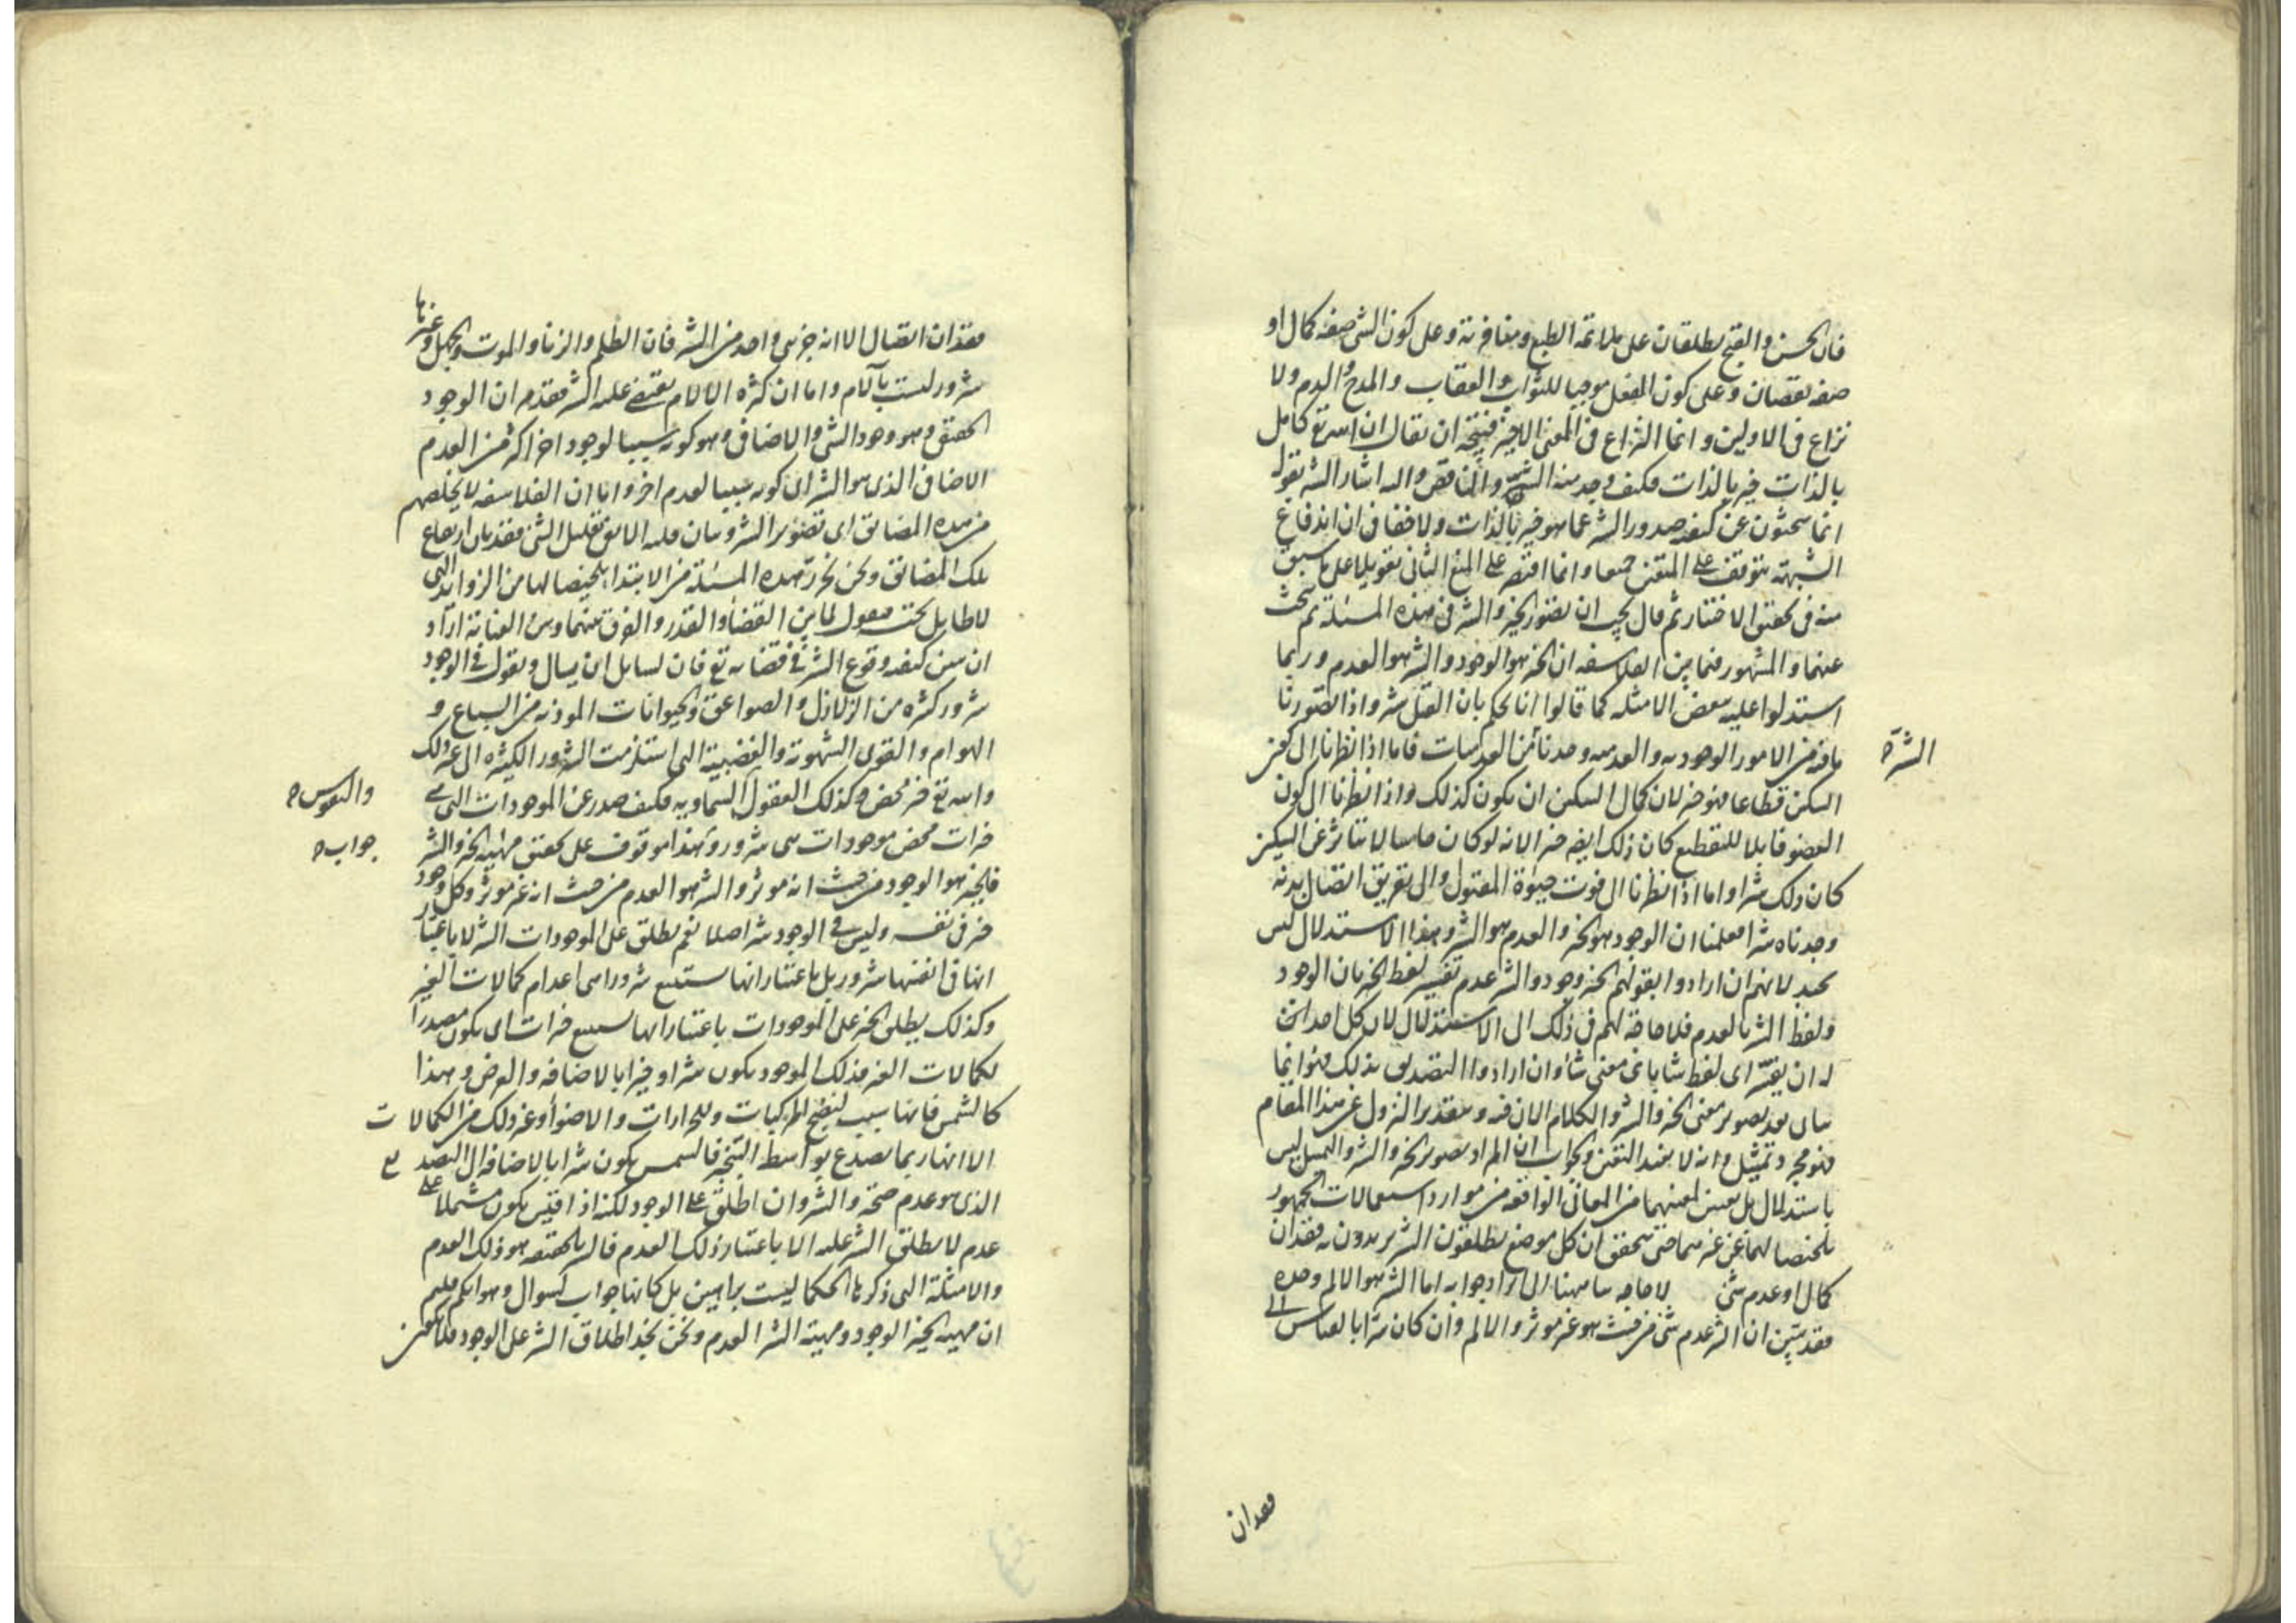 فان الحسن والقبح يطلقان على ملائمة الطبع ومنافرته وعلى كون الشئ صفة كمال او
صفة نقصان وعلى كون الفعل موجبا للثواب والعقاب والمدح والذم ولا
نزاع فى الاولين وانما النزاع فى المعنى الاخير فيتجه ان يقال ان الله تع كامل
بالذات خير بالذات فكيف وجد منه الشر والناقص واليه اشار الشر بقوله
انما يبحثون عن كيفية صدور الشر عما هو خير بالذات ولا خفا فى ان اندفاع
الشبهة يتوقف على المنعين جميعا وانما اقتصر على المنع الثانى تعويلا على ما سبق
منه فى تحقيق الاختيار ثم قال يجب ان يتصور الخير والشر فى هذه المسئلة ثم يبحث
عنهما والمشهور فيما بين الفلاسفه ان الخير هو الوجود والشر هو العدم وربما
استدلوا عليه ببعض الامثله كما قالوا انا نحكم بان القتل شر واذا تصورنا
ما فيه من الامور الوجوديه والعدميه وجدنا من العدميات فاما اذا نظرنا الى كون
الشر
السكين قطاعا فهو خير لان كمال السكين ان يكون كذلك واذا نظرنا الى كون
العضو قابلا للتقطيع كان ذلك ايضه خيرا لانه لو كان صلبا لا يتاثر عن السكين
كان ذلك شرا واما اذا نظرنا الى فوت حيوة المقتول والى تفريق اتصال بدنه
وجدناه شرا فعلمنا ان الوجود هو الخير والعدم هو الشر وهذا الاستدلال ليس
بجيد لانهم ان ارادوا بقولهم الخير وجود والشر عدم تفسير لفظ الخير بان الوجود
ولفظ الشر بالعدم فلا حاجة لهم فى ذلك الى الاستدلال لان كل احد
له ان يفسر اى لفظ شا باى معنى شأ وان ارادوا التصديق بذلك فهو انما
بعد تصوير معنى الخير والشر والكلام الان فيه وبتقدير النزول عن هذا المقام
فهو مجرد تمثيل وانه لا يفيد اليقين والجواب ان المراد تصوير الخير والشر والتمثيل ليس
باستدلال بل تعيين لمعنيهما من المعانى الواقعه من موارد استعمالات الجمهور
تلخيصا لهما عن غيرهما حتى يتحقق ان كل موضع يطلقون الشر يريدون به فقدان
كمال او عدم شئ لا حاجه بنا ههنا الى ايراد جوابه اما الشر هو الالم وحده
فقد تبين ان الشر عدم شئ من حيث هو غير موثر والالم وان كان شرا بالقياس الى
فقدان
فقدان اتصال الا انه جزئى واحد من الشر فان الظلم والزنا والموت والجهل وغيرها
شرور ليست بآلام واما ان كثره الالام يقتضى غلبه الشر فقد مر ان الوجود
الحقيقى وهو وجود الشى والاضافى وهو كونه سببا لوجود اخر اكثر من العدم
الاضافى الذى هو الشر اى كونه سببا لعدم اخر واما ان الفلاسفه لا يخلصهم
من هذه المضايق اى تصوير الشر وبيان فقد بان ارتفاع
تلك المضائق ونحن نحرر هذه المسئلة من الابتدا تلخيصا لها من الزوايد التى
لا طايل تحته فنقول لما بين القضأ والقدر والفرق بينهما وبين العناية اراد
ان يبين كيفيه وقوع الشر فى قضائه تع فان لسايل ان يسال ويقول فى الوجود
شرور كثيره من الزلازل والصواعق والحيوانات الموذيه من السباع و
الهوام والقوى الشهوية والغضبية التى استلزمت الشرور الكثيره الى غير ذلك
والله تع خير محض وكذلك العقول السماويه فكيف صدر عن الموجودات التى هى
والنفوس
خيرات محض موجودات هى شرور وهذا موقوف على تحقيق مهيه الخير والشر
جواب
فالخير هو الوجود من حيث انه موثر والشر هو العدم من حيث انه غير موثر وكل وجود
خير فى نفسه وليس فى الوجود شر اصلا نعم يطلق على الموجودات الشر لا باعتبار
انها فى انفسها شرور بل باعتبار انها تستتبع شرورا هى اعدام كمالات الغير
وكذلك يطلق الخير على الموجودات باعتبار انها تستتبع خيرات اى يكون مصدرا
لكمالات الغير فذلك الموجود يكون شرا وخيرا بالاضافه والعرض وهذا
كالشمس فانها سبب لنضج المركبات وللحرارات والاضوأ وغير ذلك من الكمالات
الا انها ربما تصدع بواسطة التبخير فالشمس يكون شرا بالاضافه الى التصدع
الذى هو عدم صحة والشر وان اطلق على الوجود لكنه اذا فتش يكون مشتملا على
عدم لا يطلق الشر عليه الا باعتبار ذلك العدم فالشر بالحقيقه هو ذلك العدم
والامثلة التى ذكرها الحكما ليست براهين بل كانها جواب لسوال وهو انكم قلتم
ان مهيه الخير الوجود ومهية الشر العدم ونحن نجد اطلاق الشر على الوجود